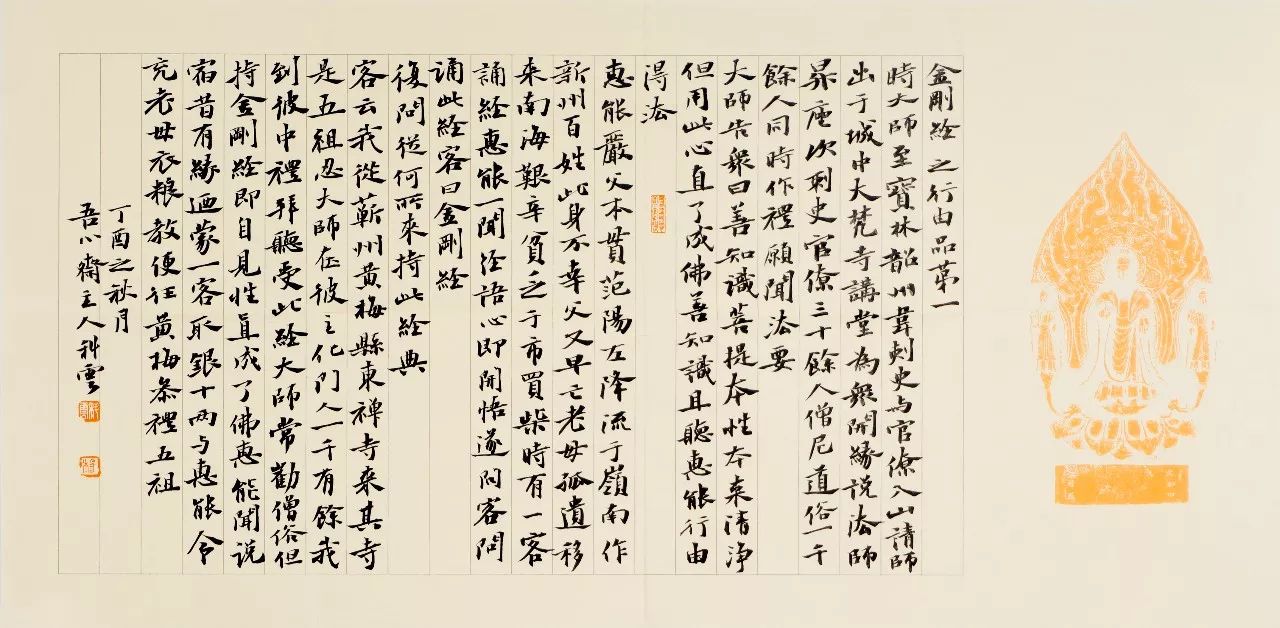 金剛経 之行由品第一
時大師至寶林韶州韋刺史与官僚入山請師
出于城中大梵寺講堂為眾開緣説法師
昇座次刺史官僚三十餘人僧尼道俗一千
餘人同時作禮願聞法要
大師告眾曰善知識菩提本性本来清浄
但用此心直了成佛善知識且聽惠能行由
得法
惠能嚴父本貫范陽左降流于嶺南作
新州百姓此身不幸父又早亡老母孤遺移
来南海艱辛貧乏于市買柴時有一客
誦経惠能一聞経語心即開悟遂问客問
誦此経客曰金剛経
復問從何所來持此経典
客云我從蘄州黄梅縣東禅寺来其寺
是五祖忍大師在彼主化门人一千有餘我
到彼中禮拜聽受此経大師常勸僧俗但
持金剛経即自見性直成了佛惠能聞説
宿昔有緣迺蒙一客取銀十兩与惠能令
充老母衣粮教便往黄梅叅禮五祖
丁酉之秋月
吾心齋主人科雲